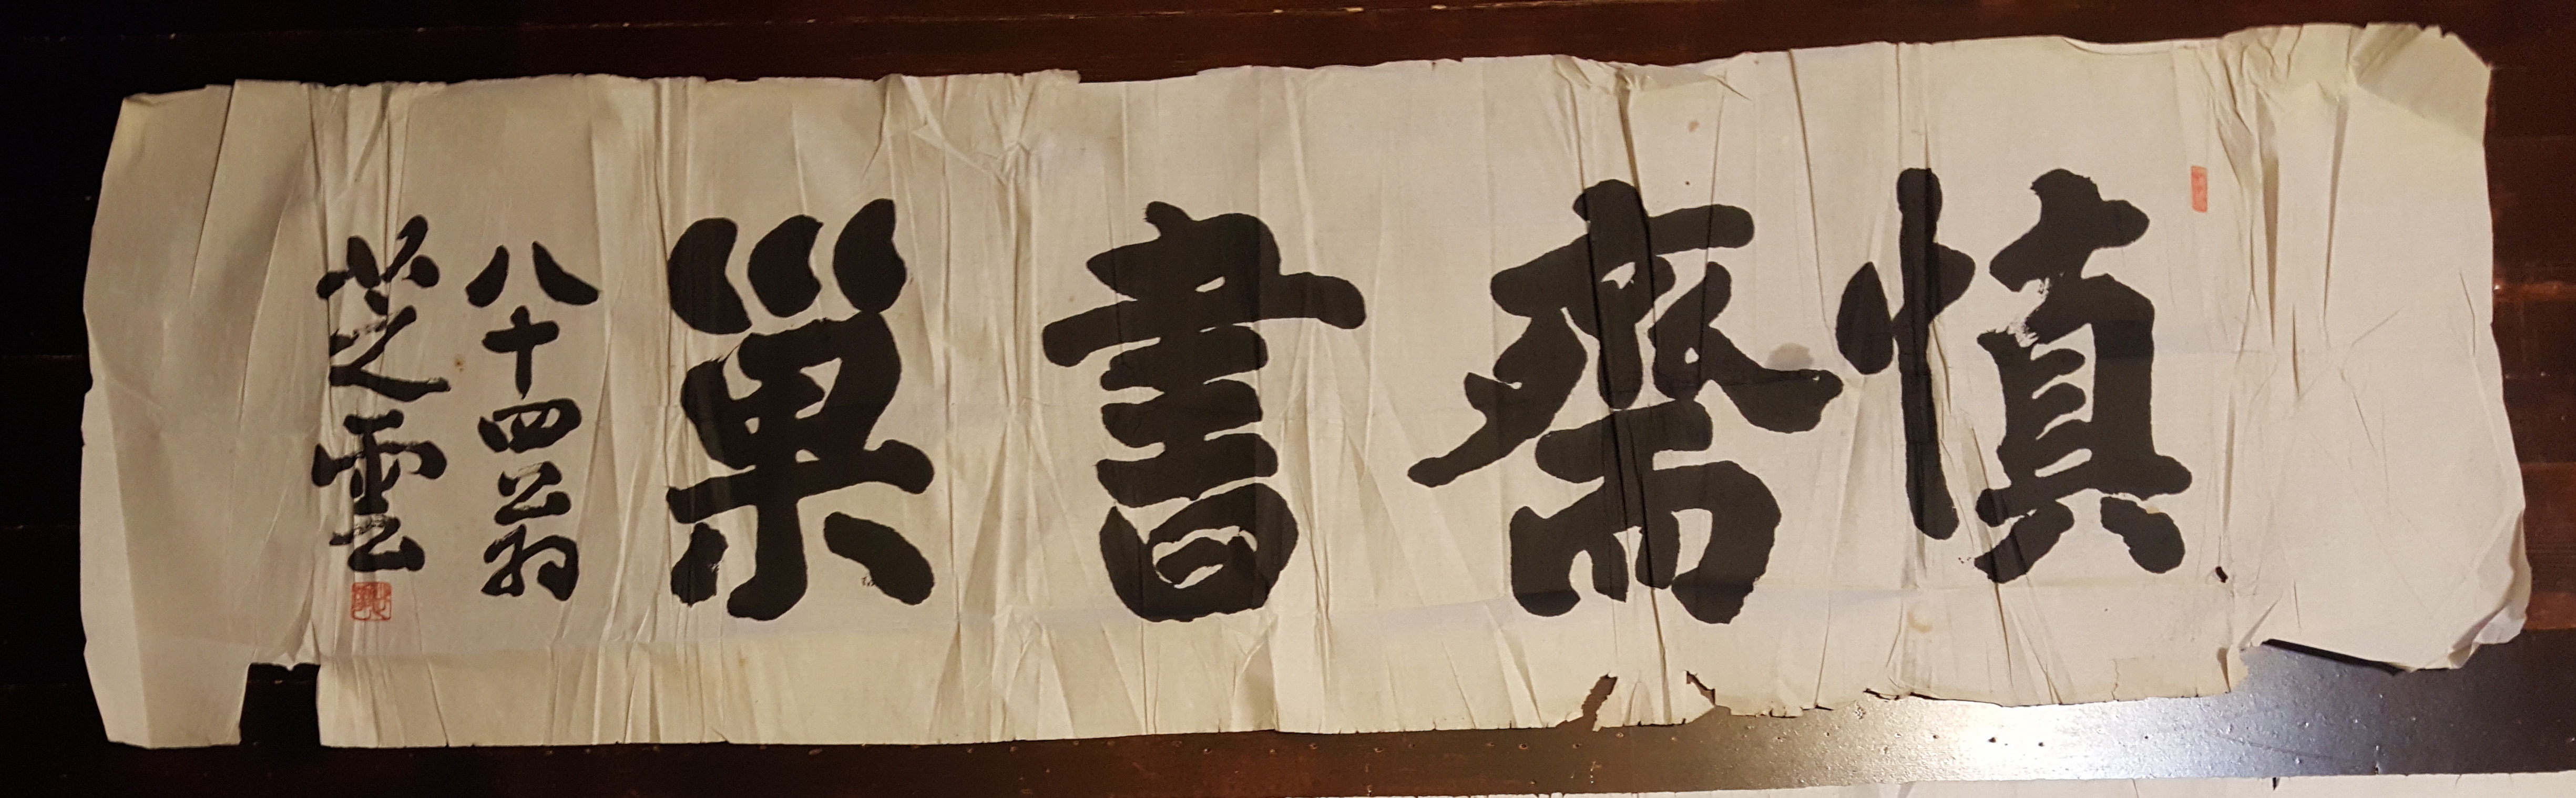 慎齋書巢
八十四翁
芝雲